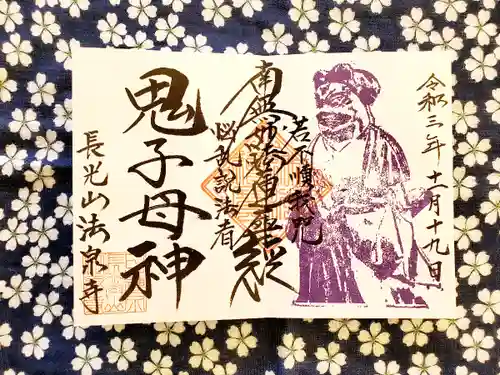 令和三年十一月十九日
若不順我呪
南無妙法蓮華経
悩乱説法者
鬼子母神
長光山法泉寺